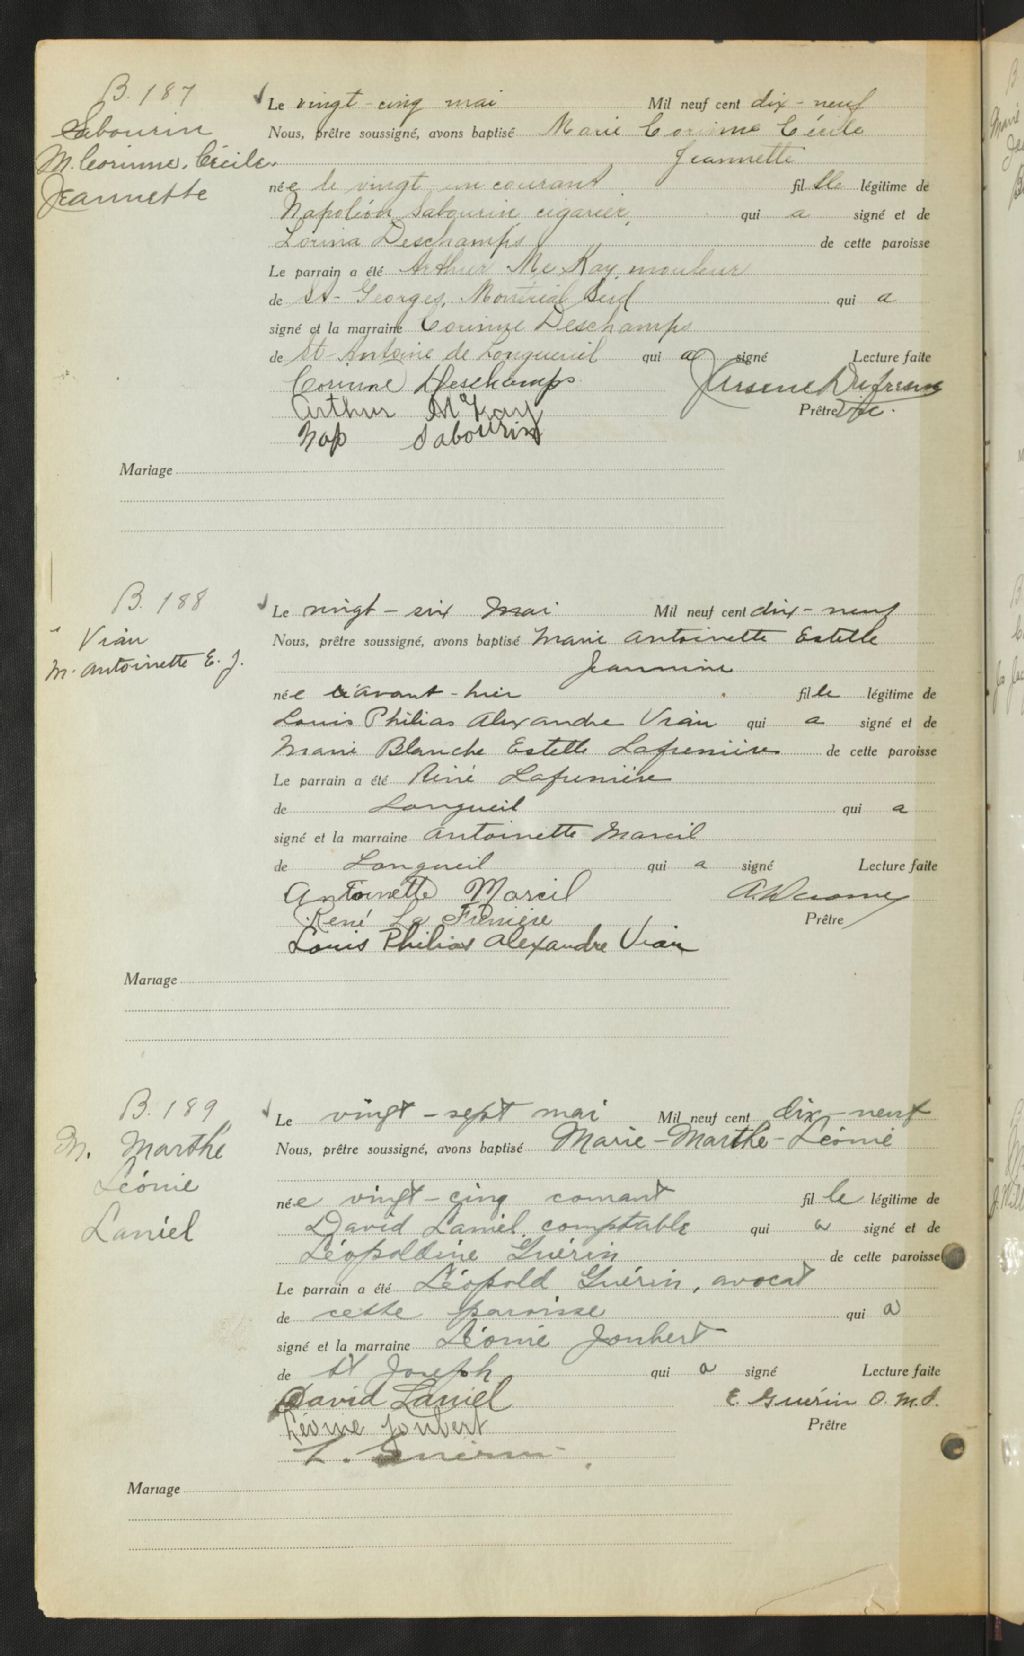 B. 187
Sabourin
M. Corinne. Cécile.
Jeannette
Le vingt-cinq mai Mil neuf cent dix-neuf
Nous, prêtre soussigné, avons baptisé Marie Corinne Cécile
Jeannette
née le vingt un courant fille légitime de
Napoléon Sabourin cigarier qui a signé et de
Lorina Deschamps de cette paroisse
Le parrain a été Arthur Mc Kay, mouleur
de St-Georges, Montréal Sud qui a
signé et la marraine Corinne Deschamps
de St-Antoine de Longueuil qui a signé Lecture faite
Corinne Deschamps J Arsene Dufresne
Arthur McKay Prêtre Vic.
Nap Sabourin
Mariage
B. 188
Viau
M. Antoinette E. J.
Le vingt-six Mai Mil neuf cent dix-neuf
Nous, prêtre soussigné, avons baptisé Marie Antoinette Estelle
Jeannine
née avant-hier fille légitime de
Louis Philias Alexandre Viau qui a signé et de
Marie Blanche Estelle Lafrenière de cette paroisse
Le parrain a été René Lafrenière
de Longueil qui a
signé et la marraine Antoinette Marcil
de Longueil qui a signé Lecture faite
Antoinette Marcil A. Derome
René La Frenière Prêtre
Louis Philias Alexandre Viau
Mariage
B. 189
M. Marthe
Léonie
Laniel
Le vingt-sept mai Mil neuf cent dix-neuf
Nous, prêtre soussigné, avons baptisé Marie-Marthe-Léonie
née vingt-cinq courant fille légitime de
David Laniel, comptable qui a signé et de
Léopoldine Guérin de cette paroisse
Le parrain a été Léopold Guérin, avocat
de cette paroisse qui a
signé et la marraine Léonie Joubert
de St Joseph qui a signé Lecture faite
David Laniel E. Guérin O.M.I.
Léonie Joubert Prêtre
L. Guérin
Mariage